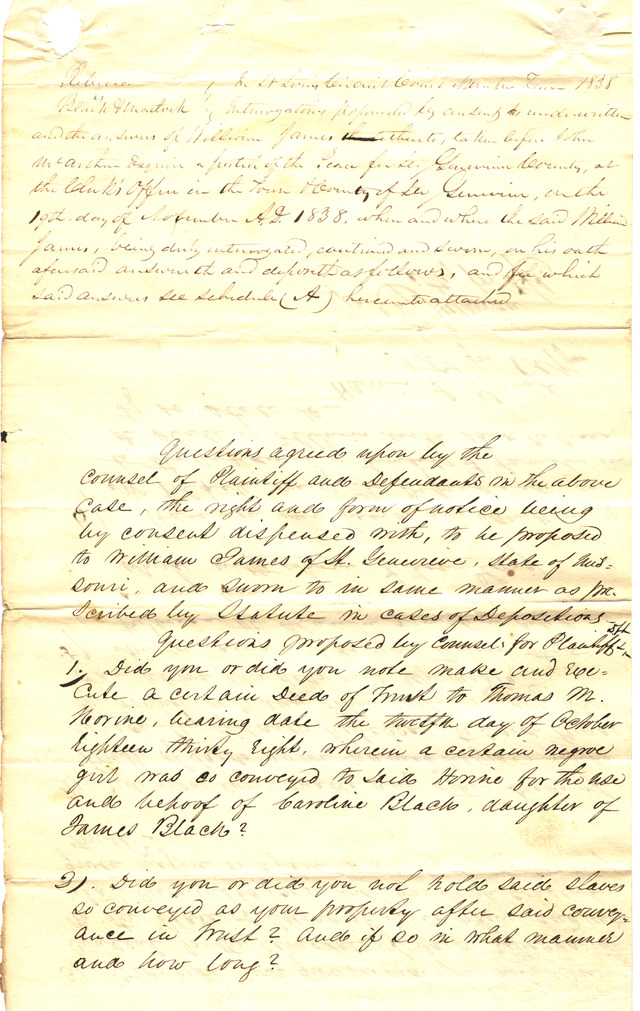 Rebecca ) In St Louis Circuit Court November Term 1838
Black & Matlock ) Interrogatories propounded by consent the underwritten
and the answers of William James thereto, taken before John
McArthur Esquire a justice of the Peace for Ste Genevieve County, at
the Clerk's Office in the Town & County of Ste Genevieve, on the
19th day of November A.D. 1838, when and where the said William
James, being duly interrogated, cautioned and sworn, on his oath
aforesaid answereth and deposeth as follows, and for which
said answers see schedule (A) hereunto attached
Questions agreed upon by the
counsel of Plaintiff and Defendants in the above
case, the right and form of notice being
by consent dispensed with, to be proposed
to William James of St. Genevieve, State of Mis-
souri, and sworn to in same manner as pre-
scribed by Statute in cases of Depositions
Questions proposed by Counsel for Plaintiff
1). Did you or did you note make and Exe-
cute a certain Deed of Trust to Thomas M.
Horine, bearing date the twelfth day of October
Eighteen thirty Eight, wherein a certain negroe
girl was so conveyed to said Horine for the use
and behoof of Caroline Black, daughter of
James Black?
2). Did you or did you not hold said slaves
so conveyed as your property after said convey-
ance in Trust? And if so in what manner
and how long?